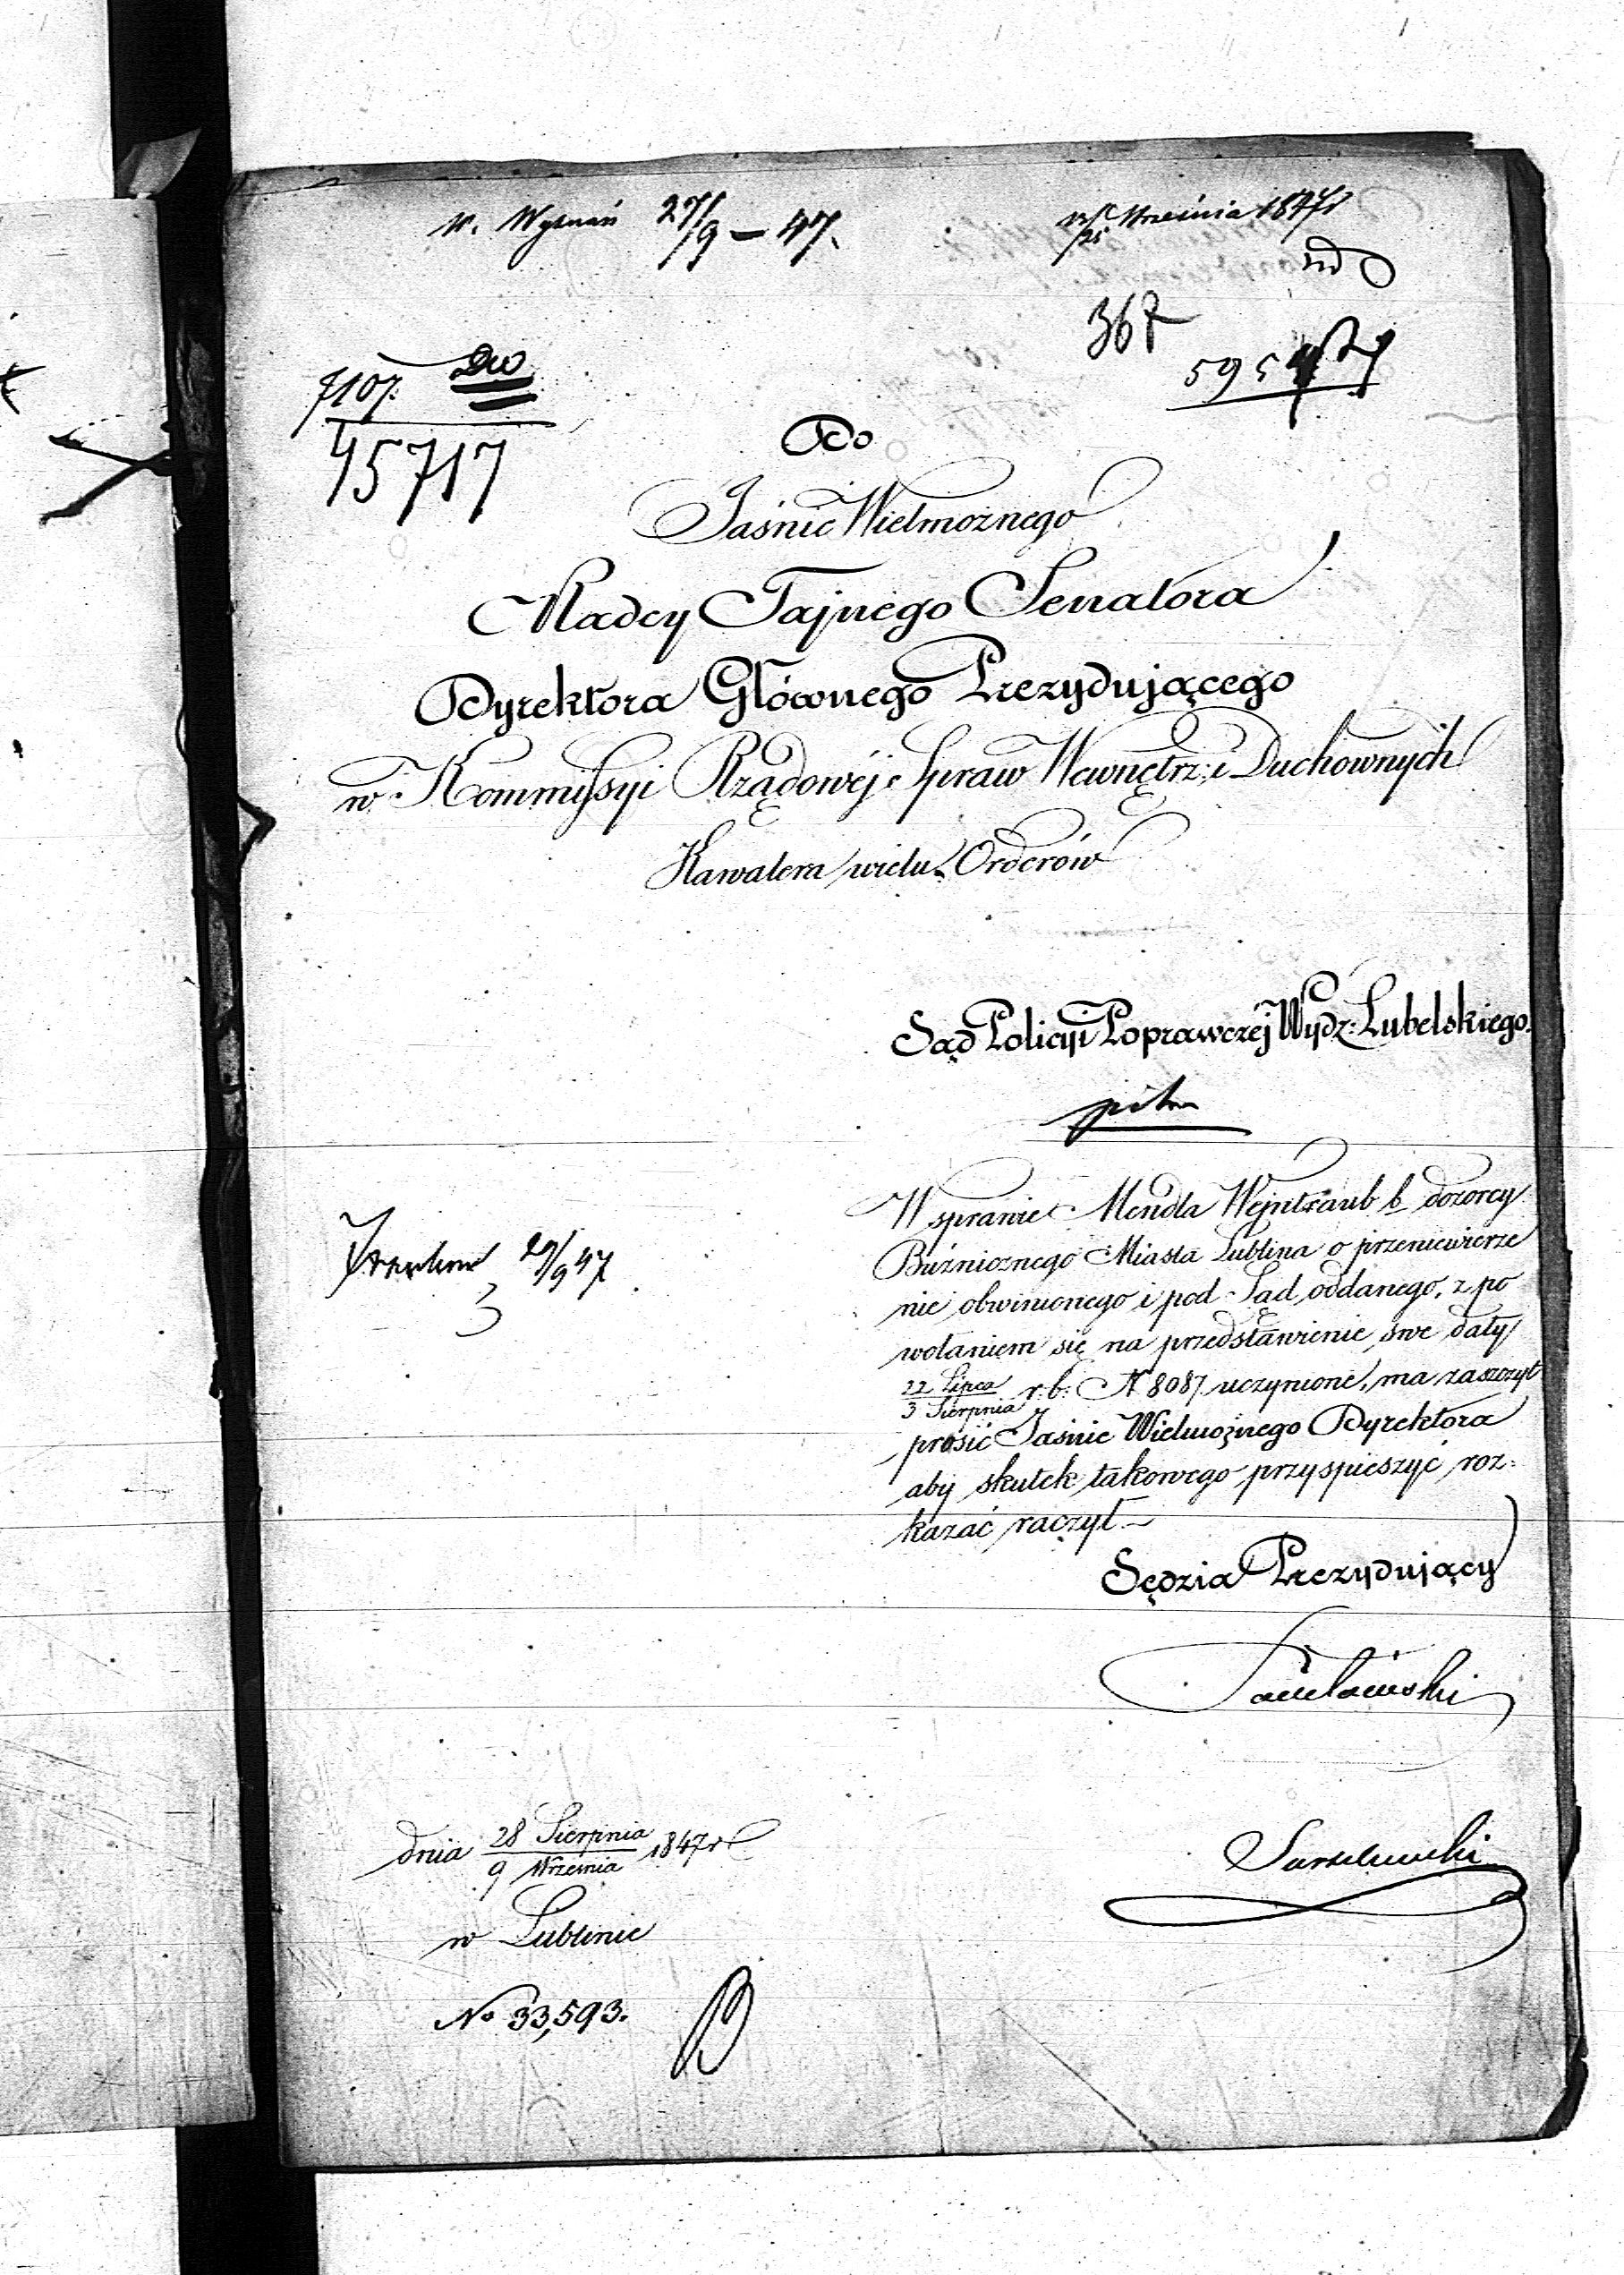 W. Wyznań 27/9 – 47.
13/25 Września 1847 r
367
7107.
45717
5954
Do
Jaśnie Wielmożnego
Radcy Tajnego Senatora
Dyrektora Głównego Prezydującego
w Kommissyi Rządowéj Spraw Wewnętrz: i Duchownych
Kawalera wielu Orderów
Sąd Policyi Poprawczéj Wydz: Lubelskiego.
W sprawie Mendla Wejntraub b. dozorcy
Bużnicznego Miasta Lublina o przeniewierze
nie obwinionego i pod Sąd oddanego, z po
wołaniem się na przedstawienie swe daty
22 Lipca / 3 Sierpnia r. b. N 8087 uczynione, ma zaszczyt
prosić Jaśnie Wielmożnego Dyrektora
aby skutek takowego przyspieszyć roz:
kazać raczył. –
29/9 47
Sędzia Prezydujący
dnia 28 Sierpnia / 9 Września 1847 r
w Lublinie
No 33,593.